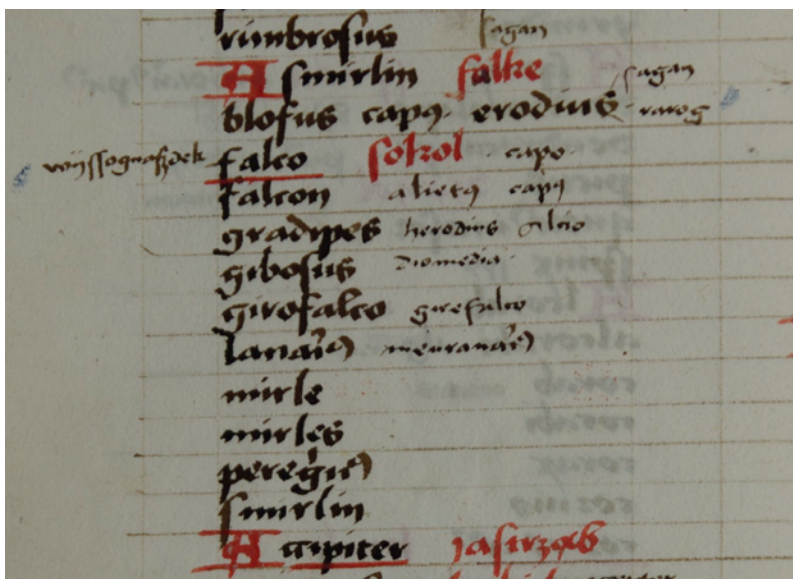 rimbrosus sagan
A smirlin falke sagan
blosus capꝯ erodius rarog
wyssognaszdek falco sokol capo
falcon alietꝯ capꝯ
gradipes herodius alcio
gibosus diomedia
girofalco girefalco
lanariꝯ
mirle
mirles
smirlin
Accipiter iastrząb